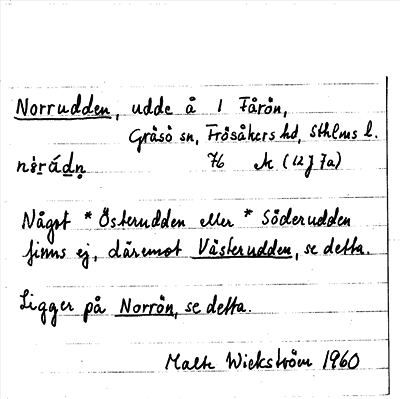 Norrudden, udde å 1 Fårön,
Gräsö sn, Frösåkers hd, Sthlms l.
76 (12 J 7a)
Något * Österudden eller * Söderudden
finns ej, däremot Västerudden, se detta.
Ligger på Norrön, se detta.
Malte Wickström 1960